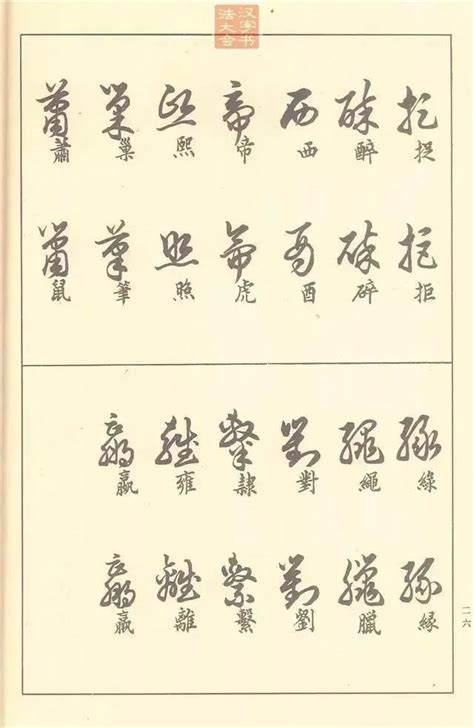 汉字书
法大会
捉拒
醉碎
西酉
帝虎
熙照
巢筆
蕭鼠
綠緣
繩臘
對劉
隸繫
雍離
二六